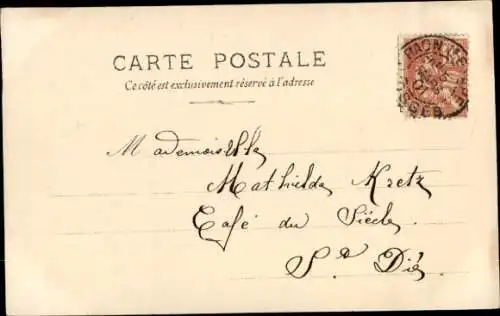 CARTE POSTALE
Ce côté est exclusivement réservé à l'adresse
Mademoiselle
Mathilde Kretz
Café du Siècle
St Dié